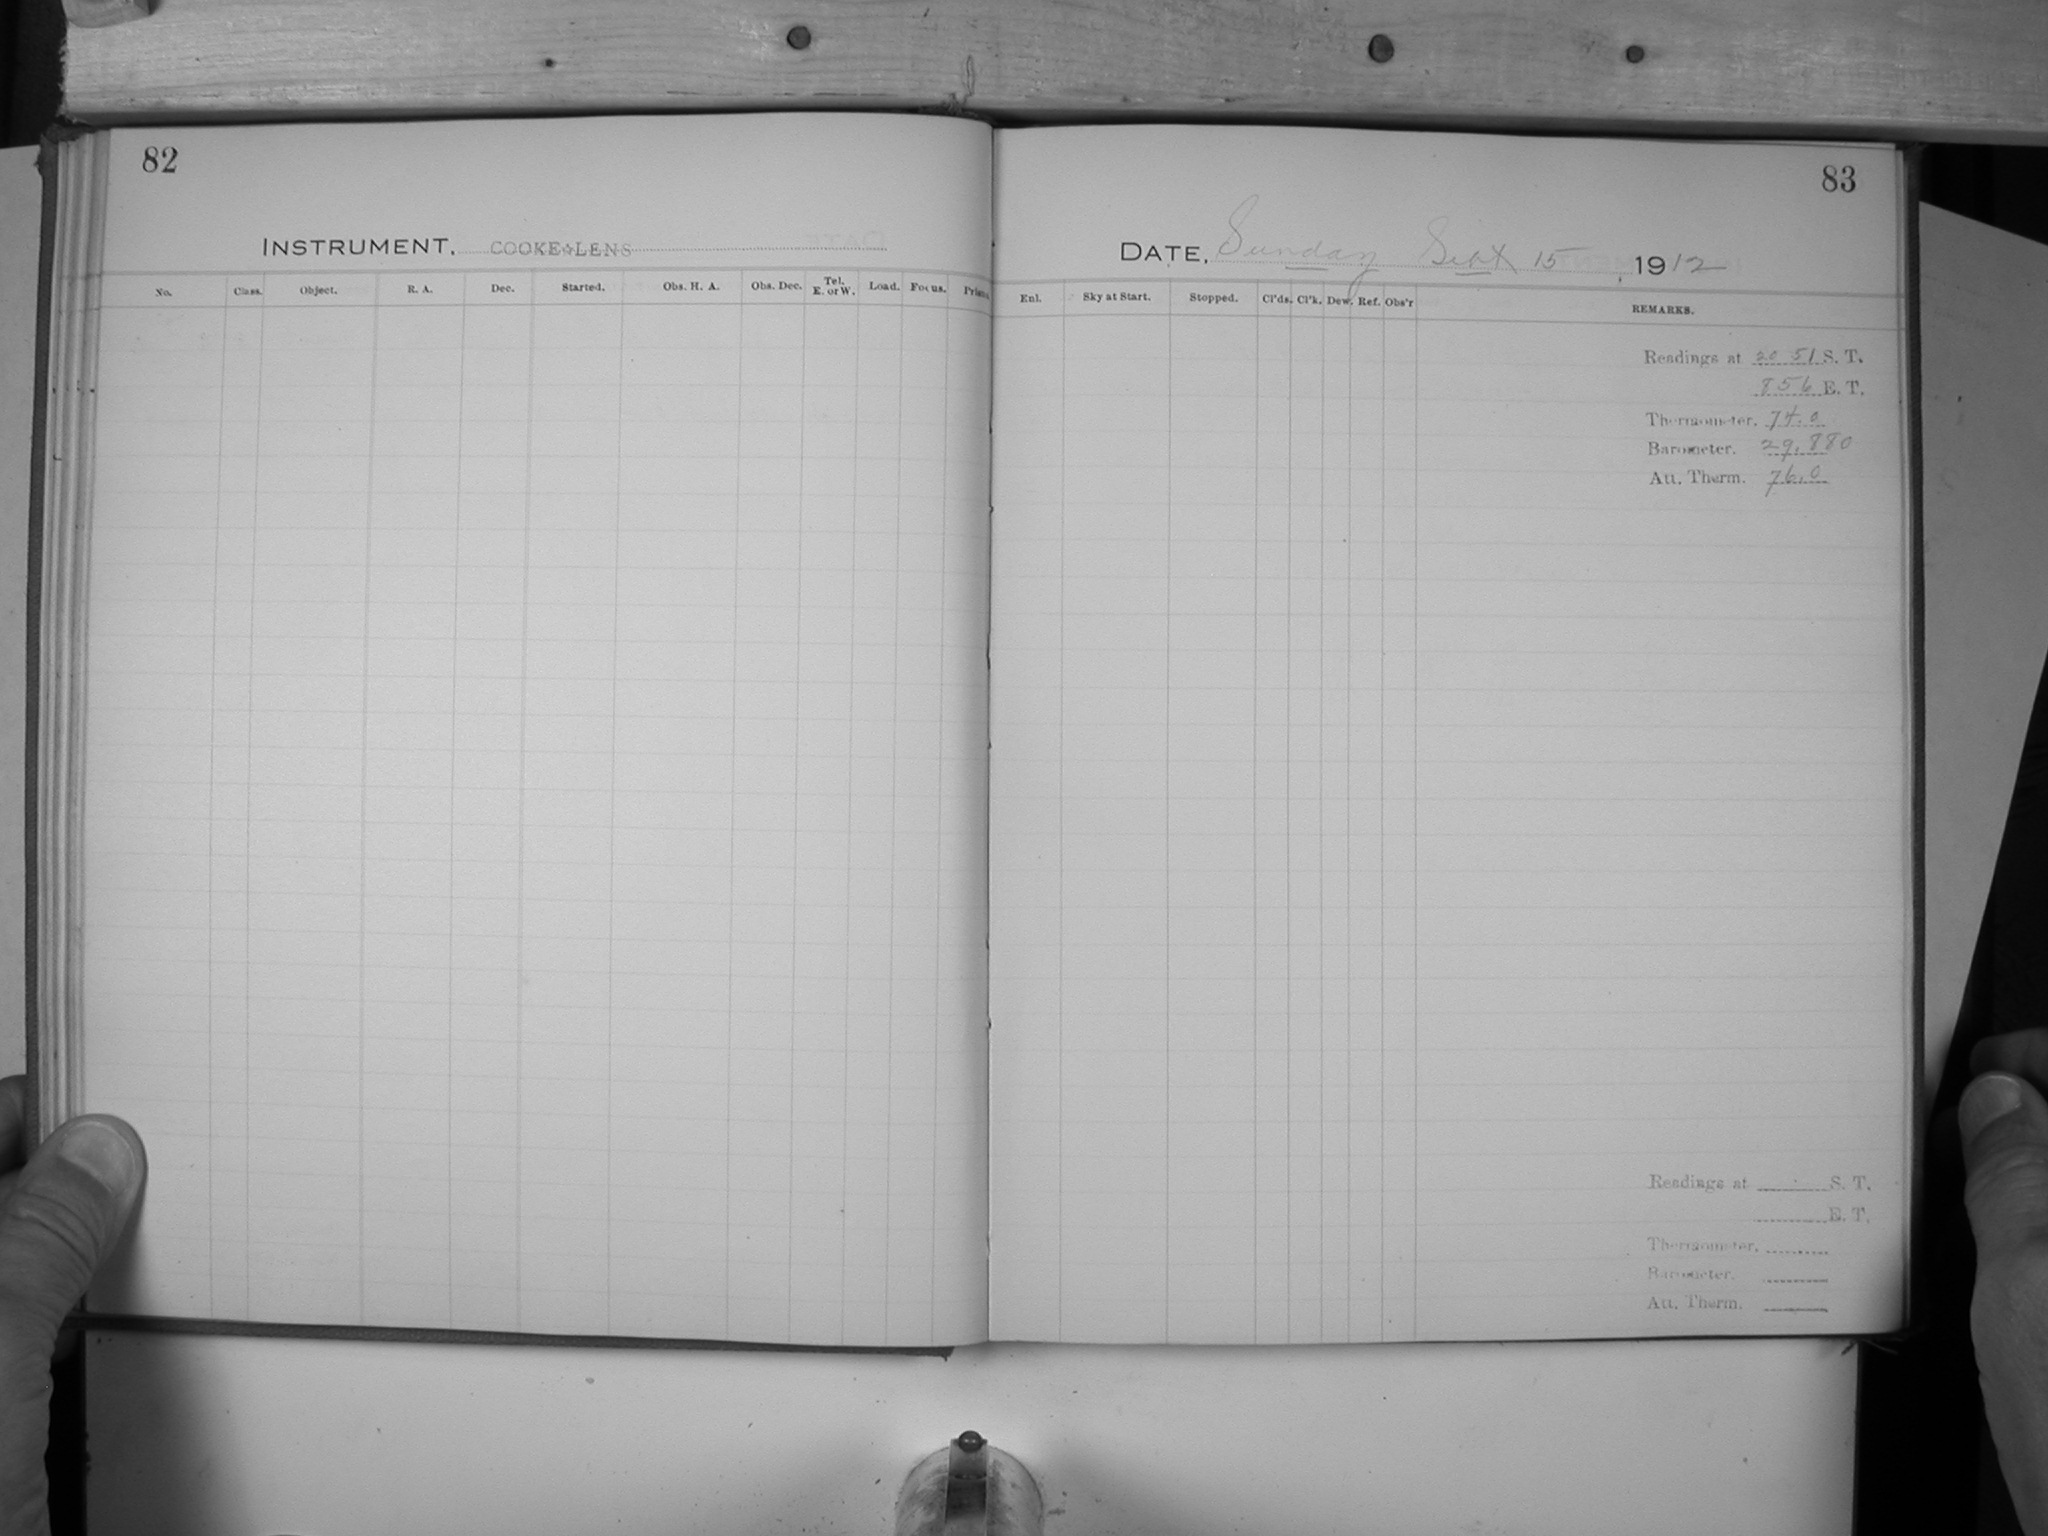 82
INSTRUMENT, COOKE☆LENS
No. Class. Object. R. A. Dec. Started. Obs. H. A. Obs. Dec. Tel. E. or W. Load. Focus.
83
DATE, Sunday Sept 15, 1912
Enl. Sky at Start. Stopped. Cl'ds. Cl'k. Dew. Ref. Obs'r REMARKS.
Readings at 20 51 S. T.
8 56 E. T.
Thermometer. 74.0
Barometer. 29.880
Att. Therm. 76.0
Readings at S. T.
E. T.
Thermometer.
Barometer.
Att. Therm.